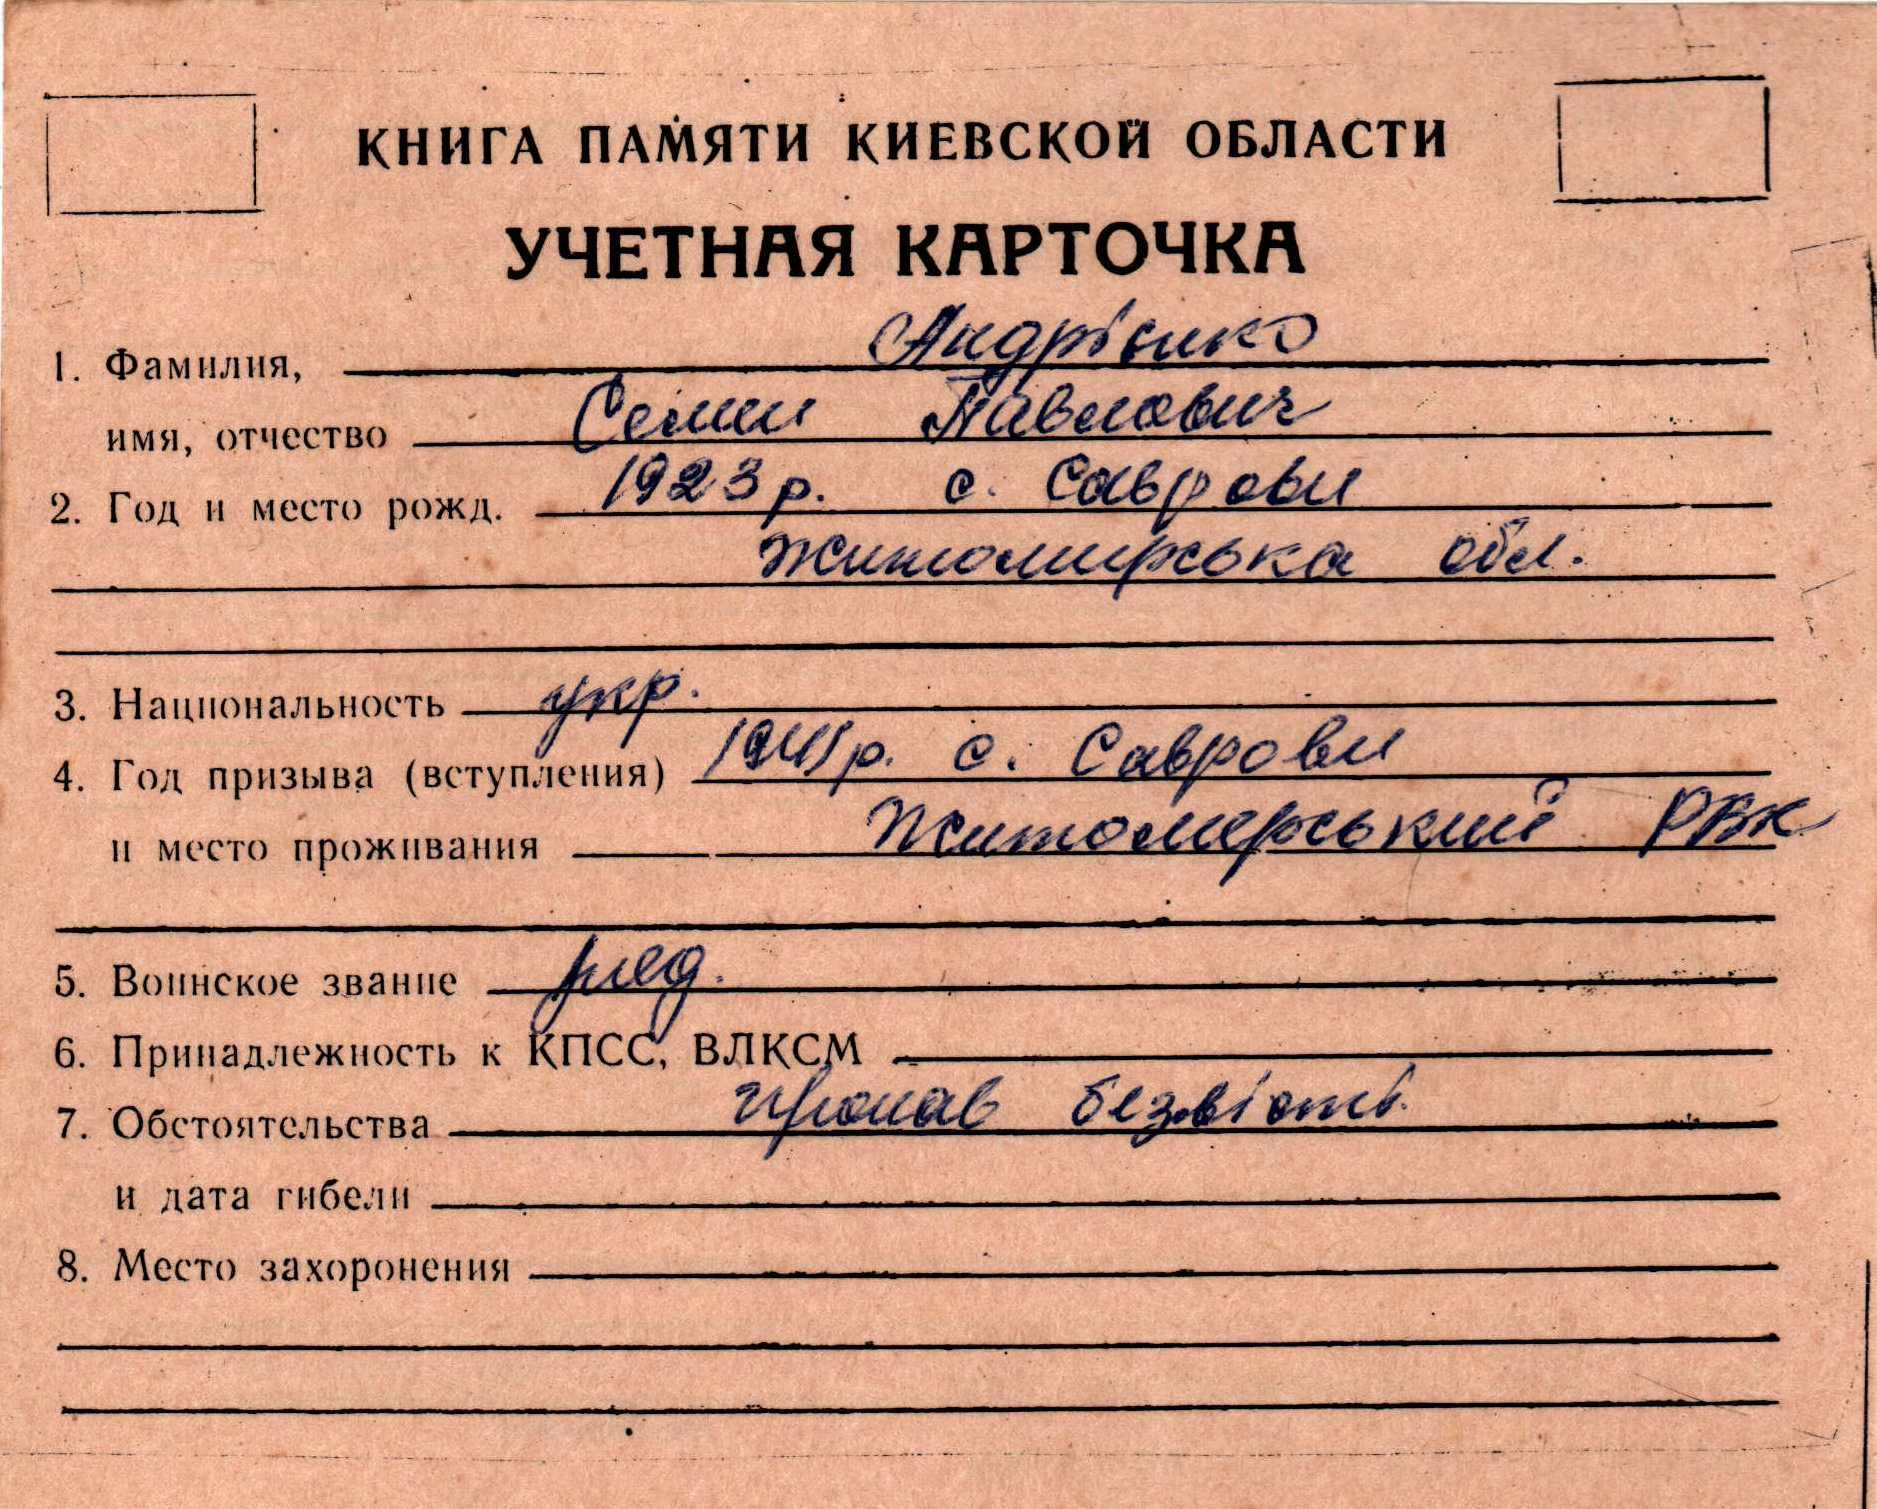 КНИГА ПАМЯТИ КИЕВСКОЙ ОБЛАСТИ
УЧЕТНАЯ КАРТОЧКА
1. Фамилия, Андрієнко
имя, отчество Семен Павлович
2. Год и место рожд. 1923 р. с. Саврови
Житомирська обл.
3. Национальность укр.
4. Год призыва (вступления) 1941 р. с. Саврови
и место проживания Житомирський РВК
5. Воинское звание ряд.
6. Принадлежность к КПСС, ВЛКСМ
7. Обстоятельства пропав безвісті.
и дата гибели
8. Место захоронения